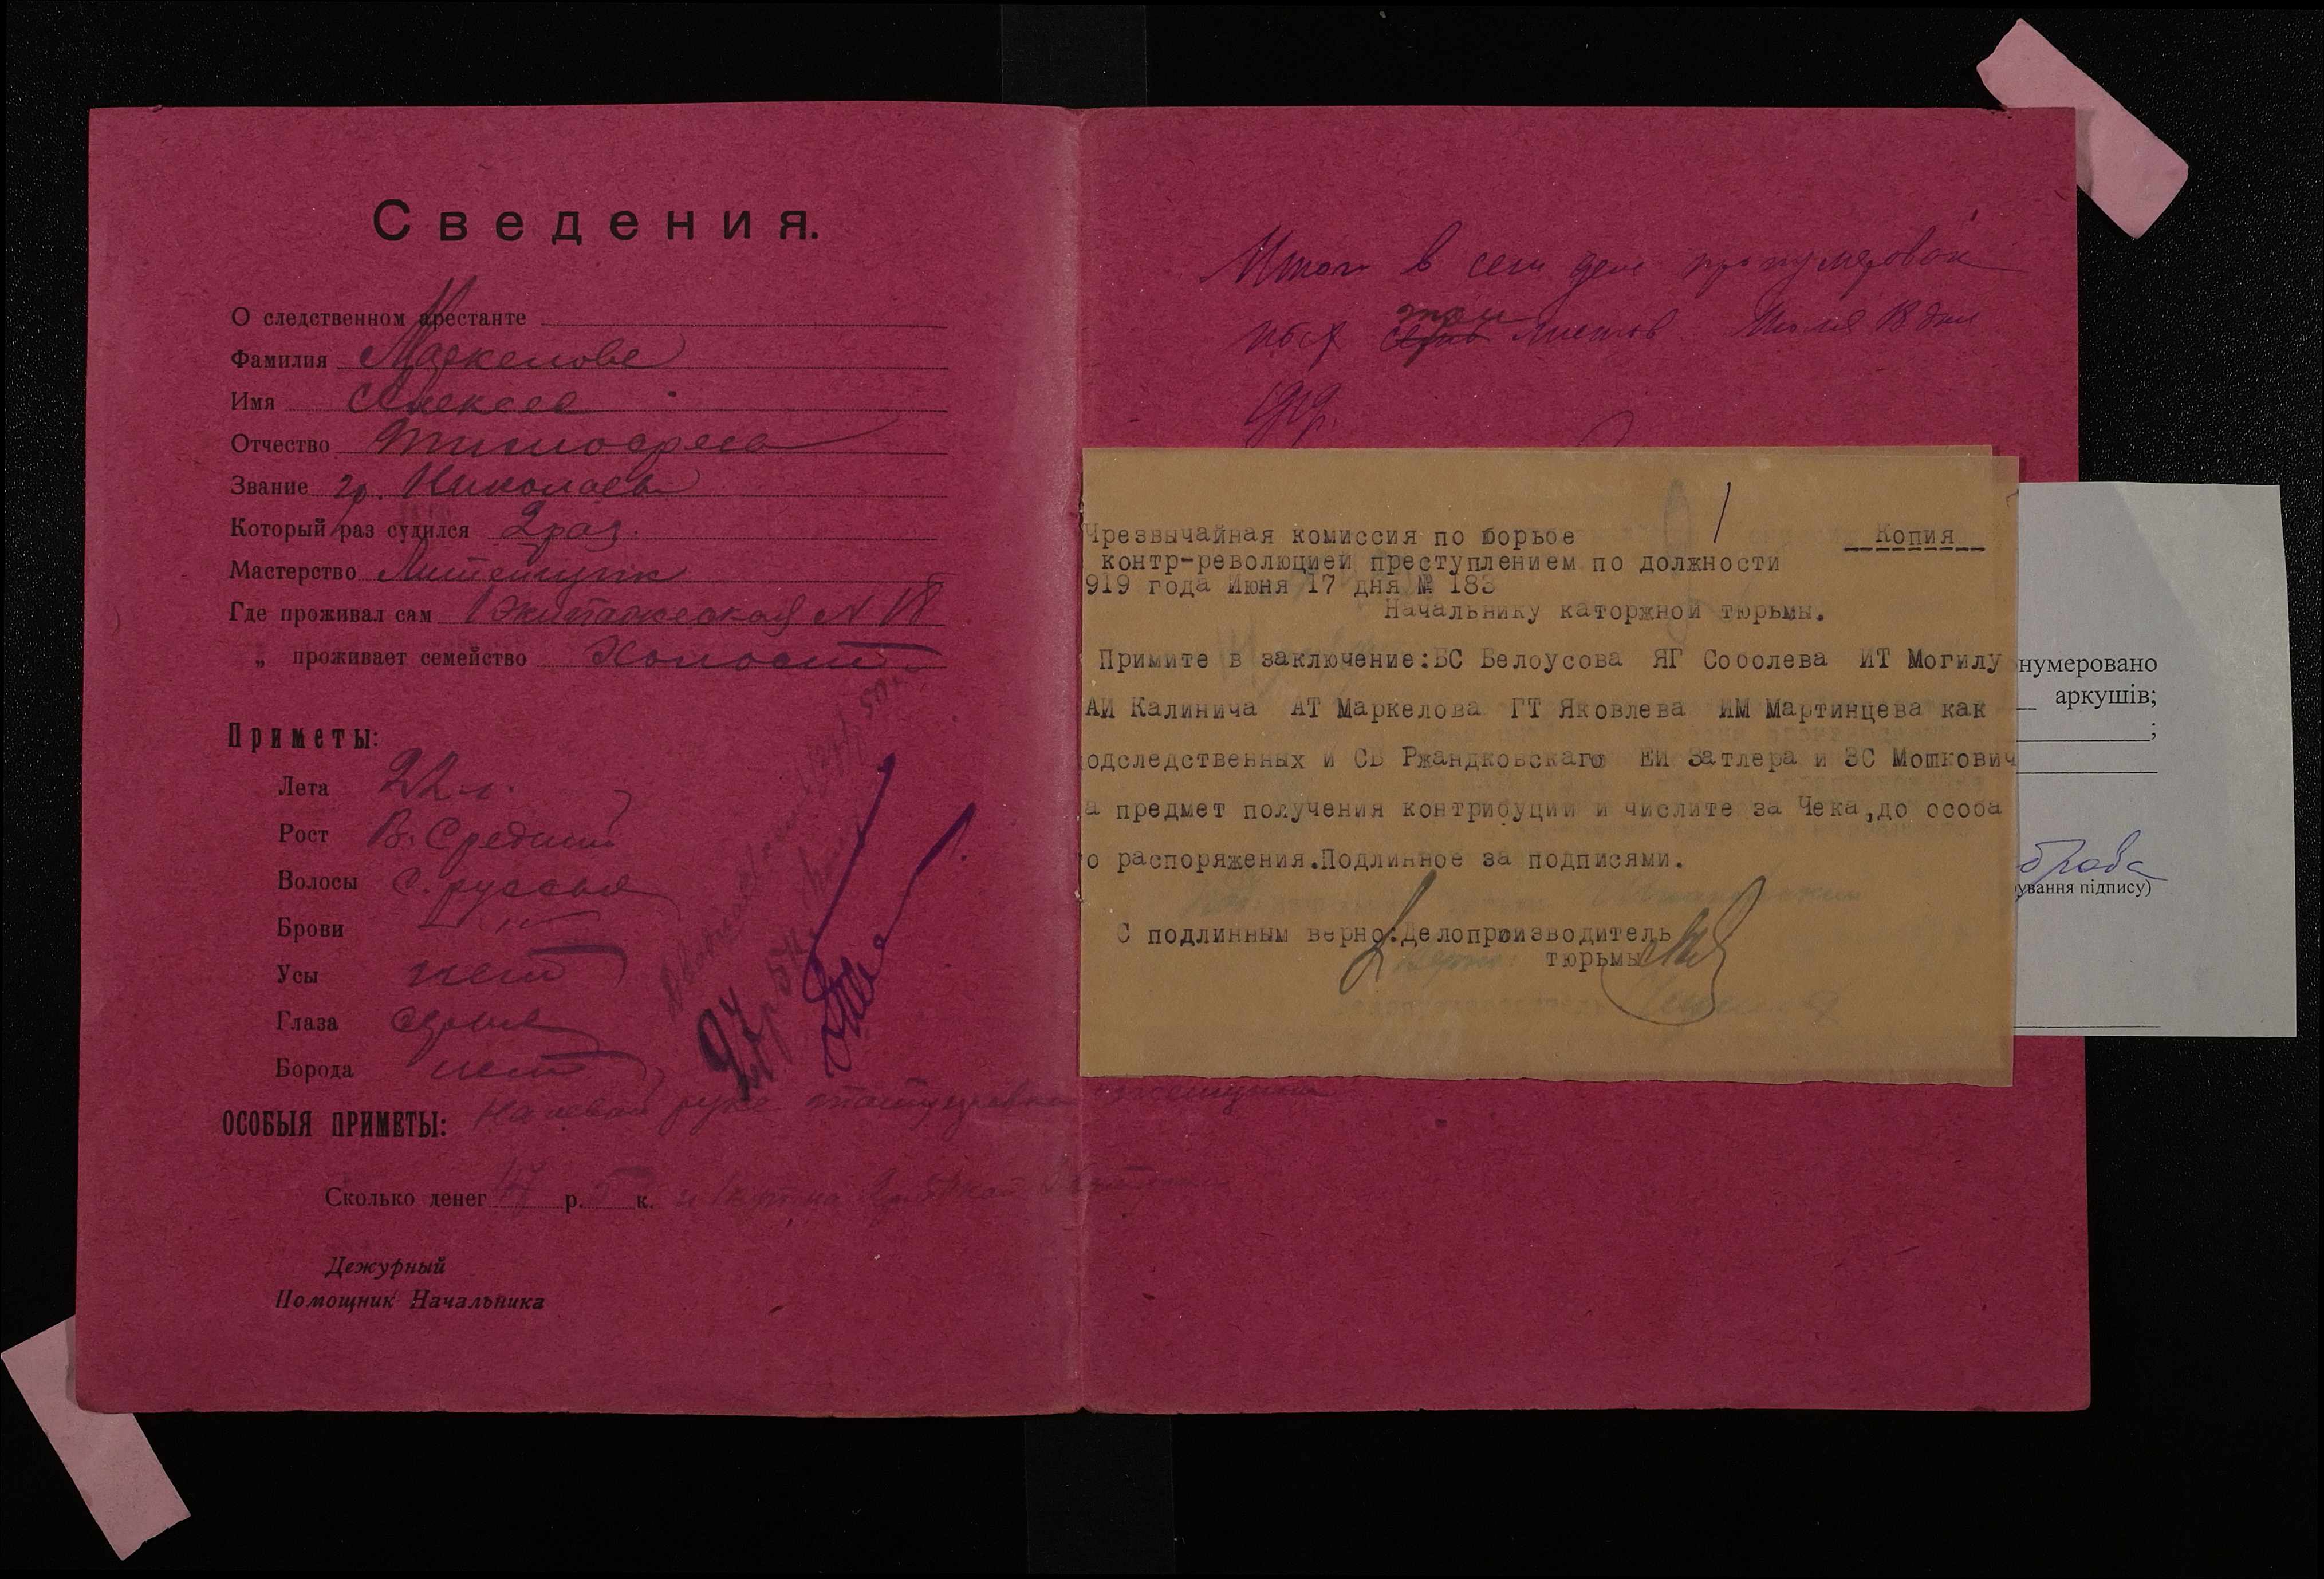 Сведения.
О следственном арестанте
Фамилия Маркелове
Имя Алексее
Отчество Тимофеев
Звание гр. Николаев
Который раз судился 2 раз.
Мастерство Литейщик
Где проживал сам Экипажеская № 18
„ проживает семейство Холост
Приметы:
Лета 22 л.
Рост В. Средний
Волосы с. русые
Брови
Усы нет
Глаза серые
Борода нет
ОСОБЫЯ ПРИМЕТЫ: На левой руке женщина
Сколько денег 47 р. к. и
Дежурный
Помощник Начальника
Итого в сем деле пронумерован
листов Июля 18 дня
1919 г.
1
Чрезвычайная комиссия по борьбе Копия
контр-революцией преступлением по должности
919 года Июня 17 дня № 183
Начальнику каторжной тюрьмы.
Примите в заключение:БС Белоусова ЯГ Соболева ИТ Могилу
АИ Калинича АТ Маркелова ГТ Яковлева ИМ Мартинцева как
одследственных и СБ Ржандковскаго ЕИ Затлера и ЗС Мошкович
а предмет получения контрибуции и числите за Чека,до особа
о распоряжения.Подлинное за подписями.
С подлинным верно:Делопроизводитель
тюрьмы
нумеровано
аркушів;
;
ування підпису)